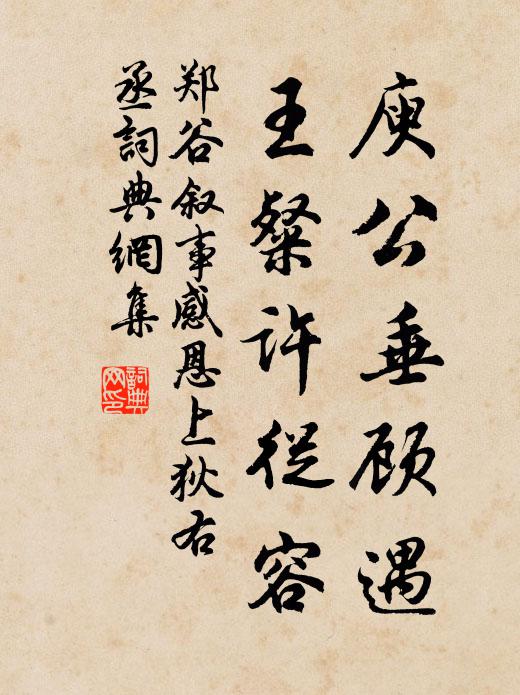 庾公垂顾遇
王粲许從容
郑谷叙事感恩上狄右
丞詞典網集
詞典
网印